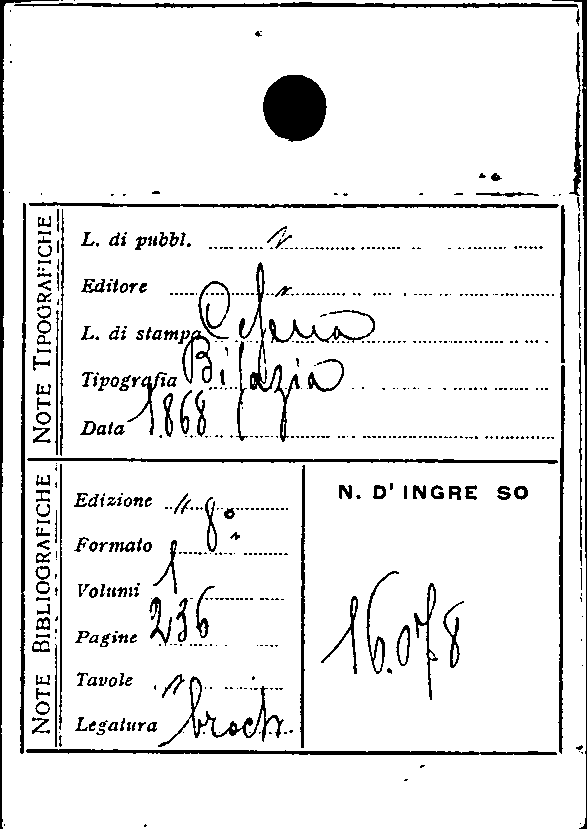 NOTE TIPOGRAFICHE
L. di pubbl. "
Editore "
L. di stampa Cesena
Tipografia
Data 1868
NOTE BIBLIOGRAFICHE
Edizione "
Formato 8°
Volumi 1
Pagine 236
Tavole "
Legatura broch.
N. D'INGRE SO
16.078